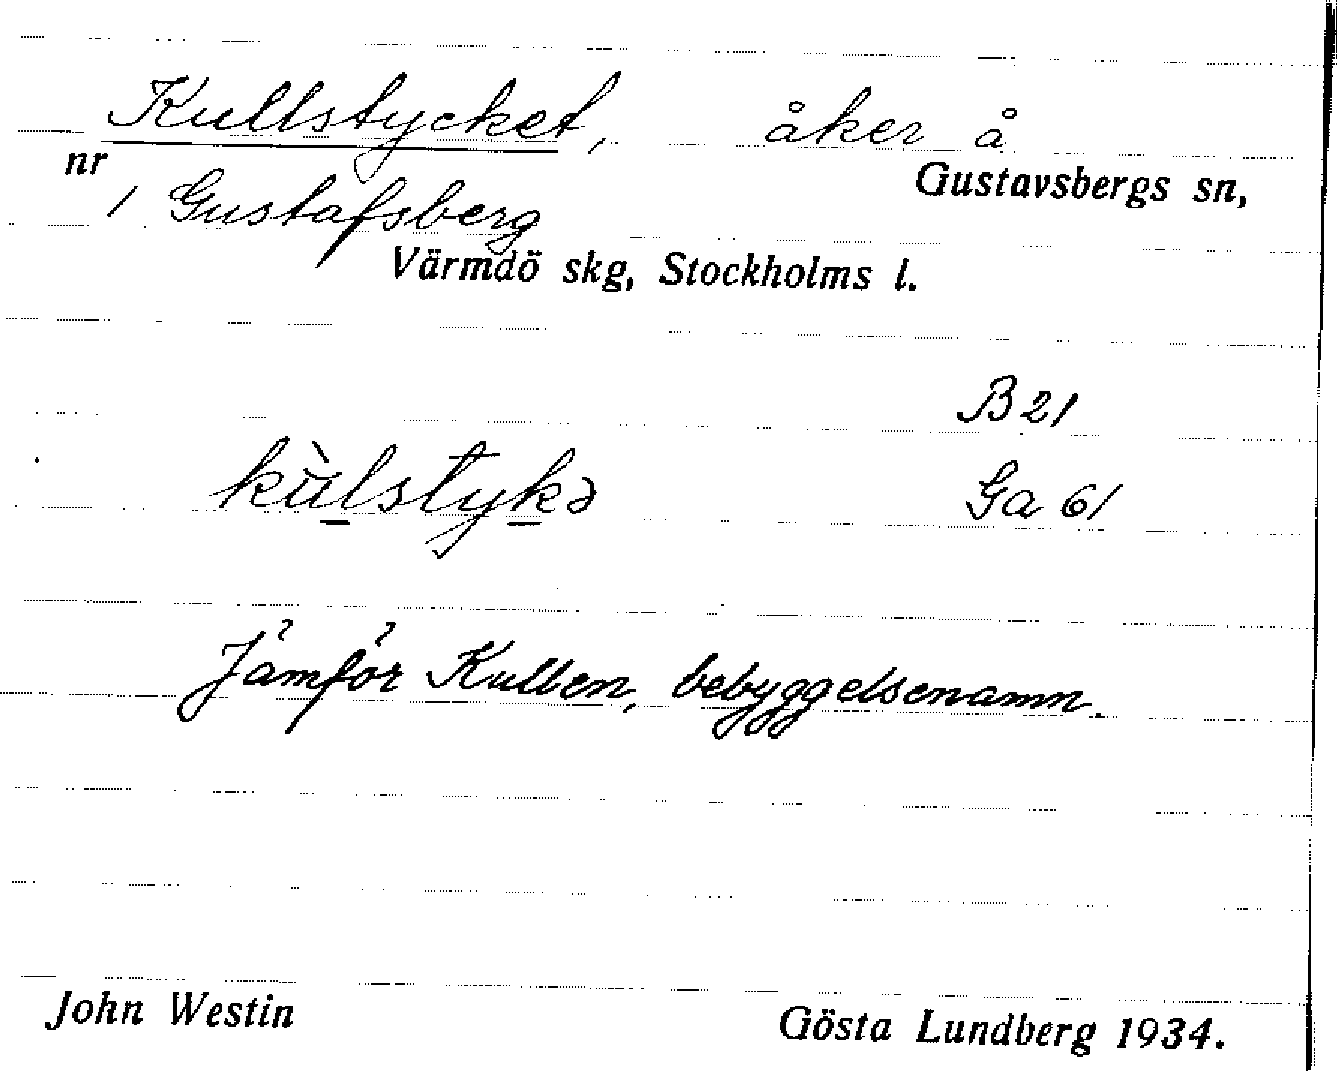 Kullstycket, åker å
nr 1 Gustafsberg Gustavsbergs sn,
Värmdö skg, Stockholms l.
B 21
kùls̲tyk̲ə Ga 61
Jämför Kullen, bebyggelsenamn.
John Westin Gösta Lundberg 1934.